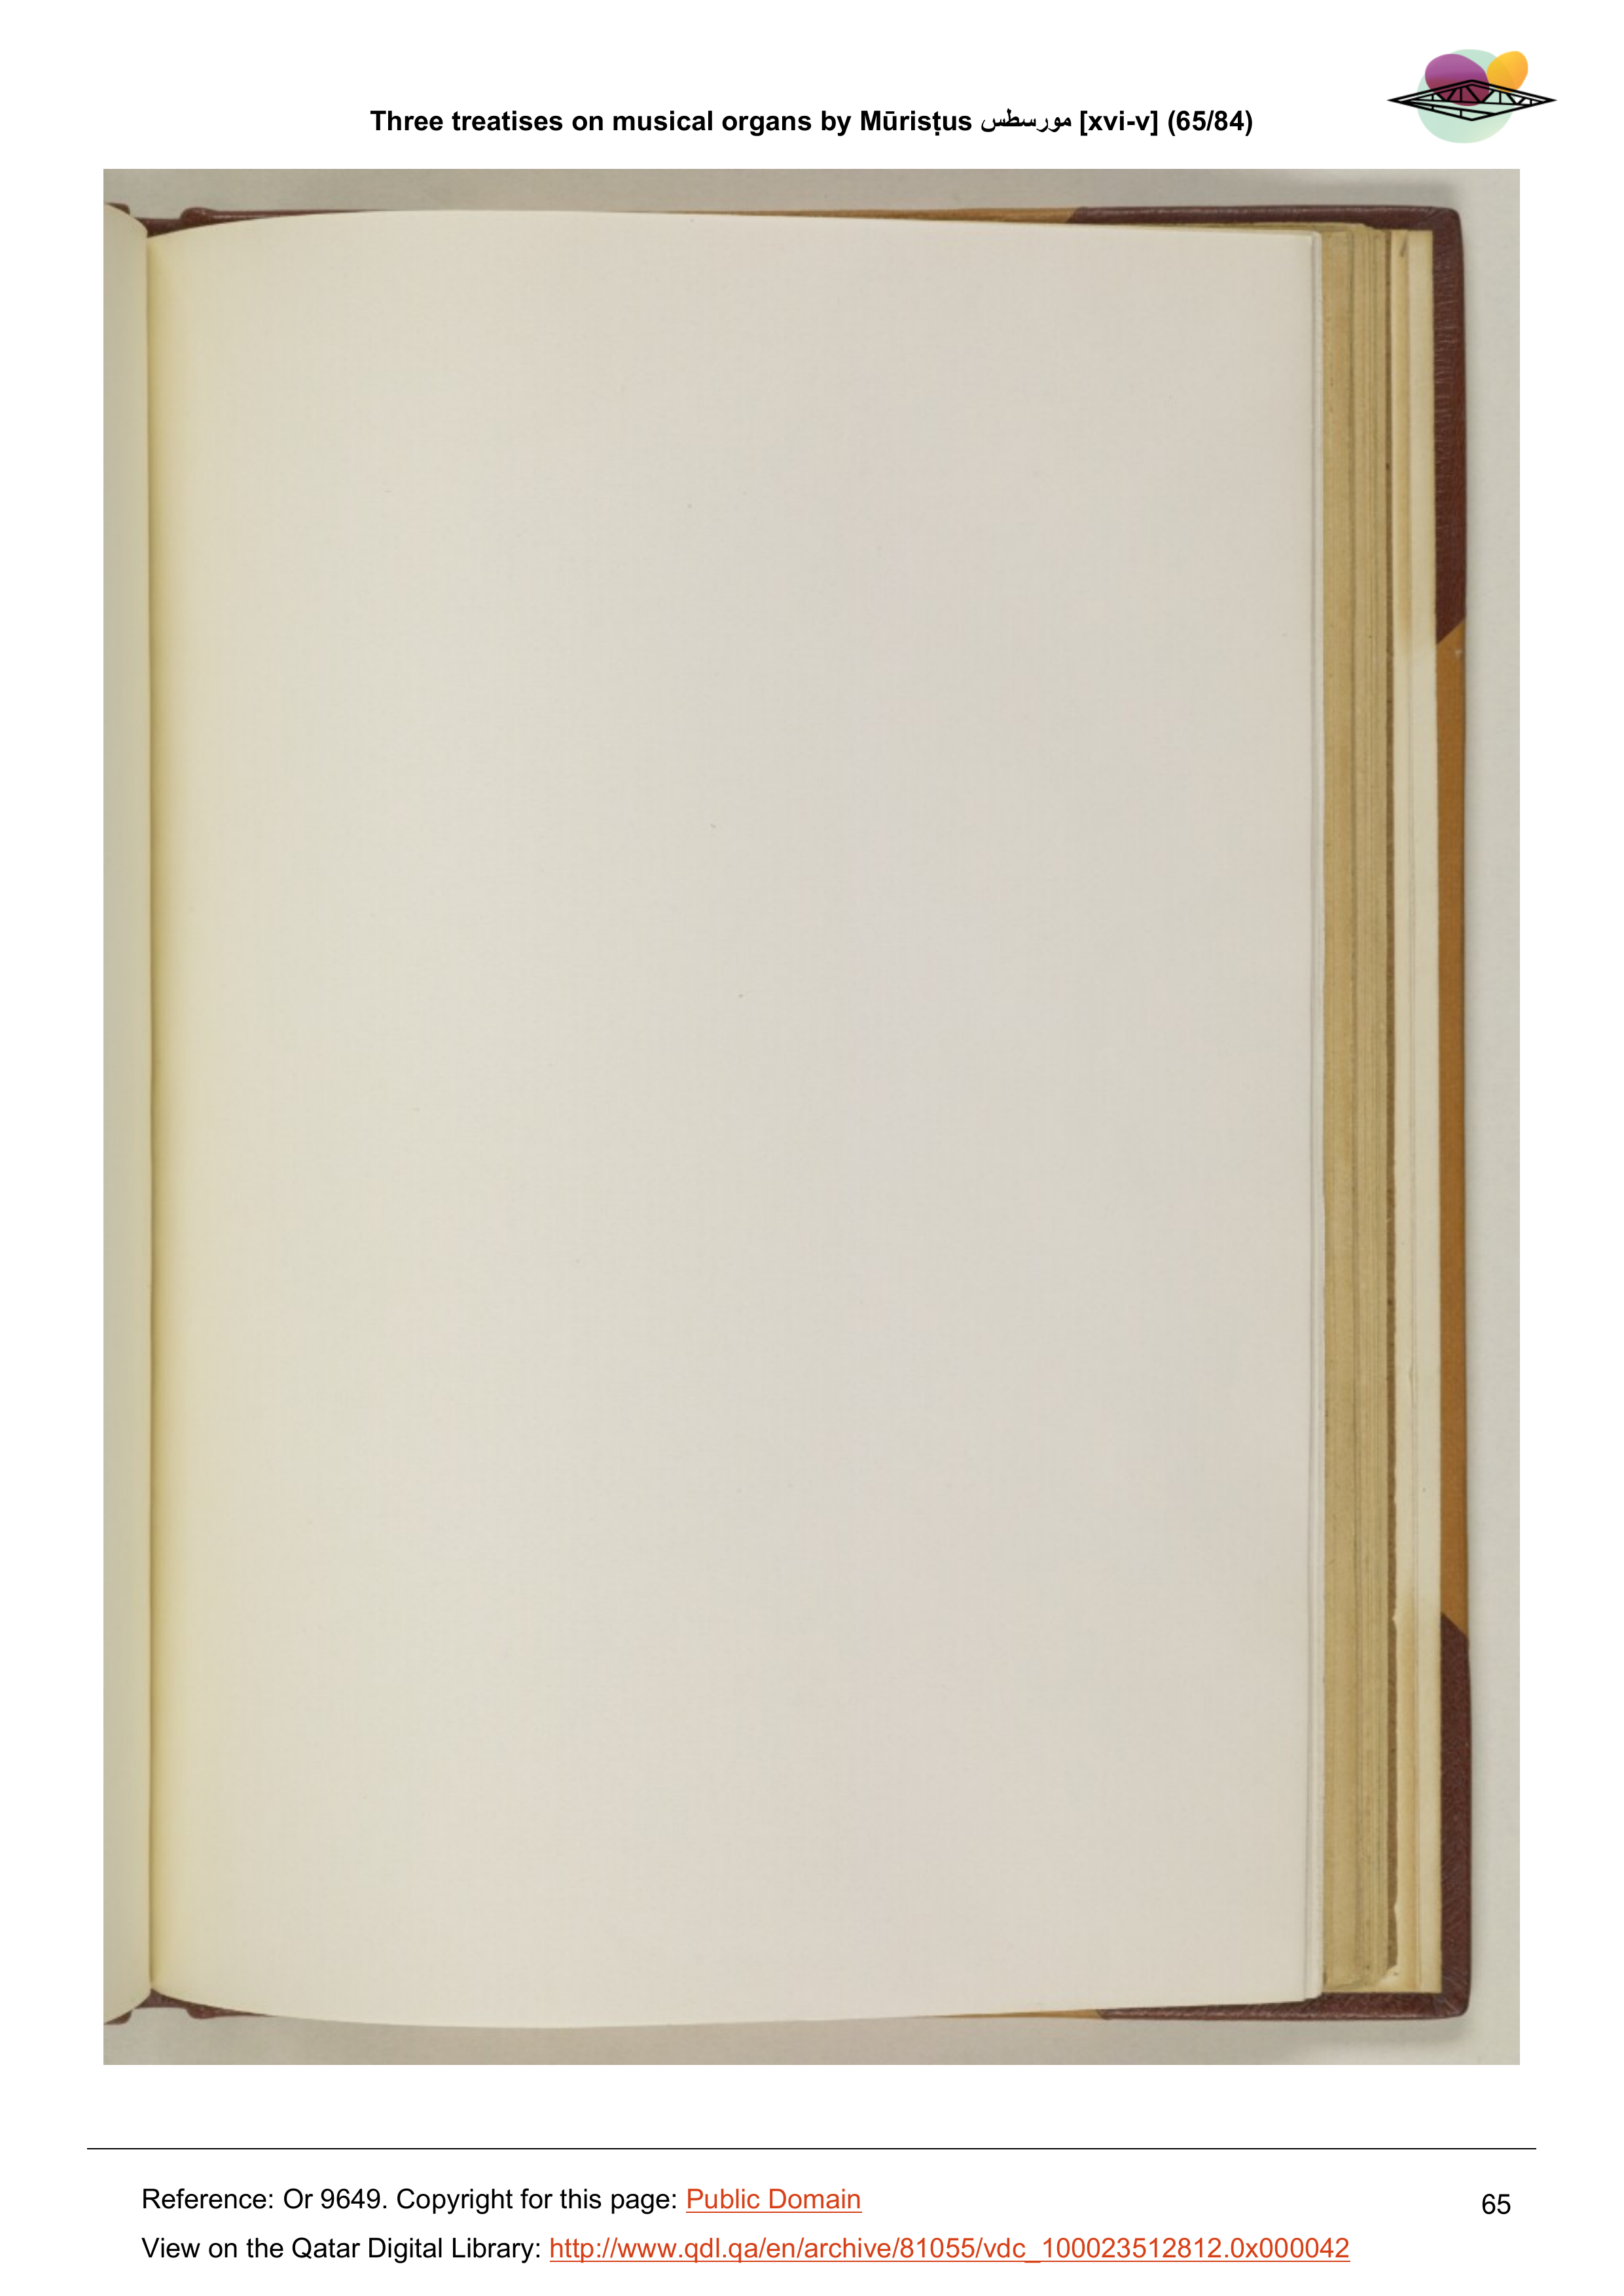 Three treatises on musical organs by Mūrisṭus مورسطس [xvi-v] (65/84)
Reference: Or 9649. Copyright for this page: Public Domain
65
View on the Qatar Digital Library: http://www.qdl.qa/en/archive/81055/vdc_100023512812.0x000042